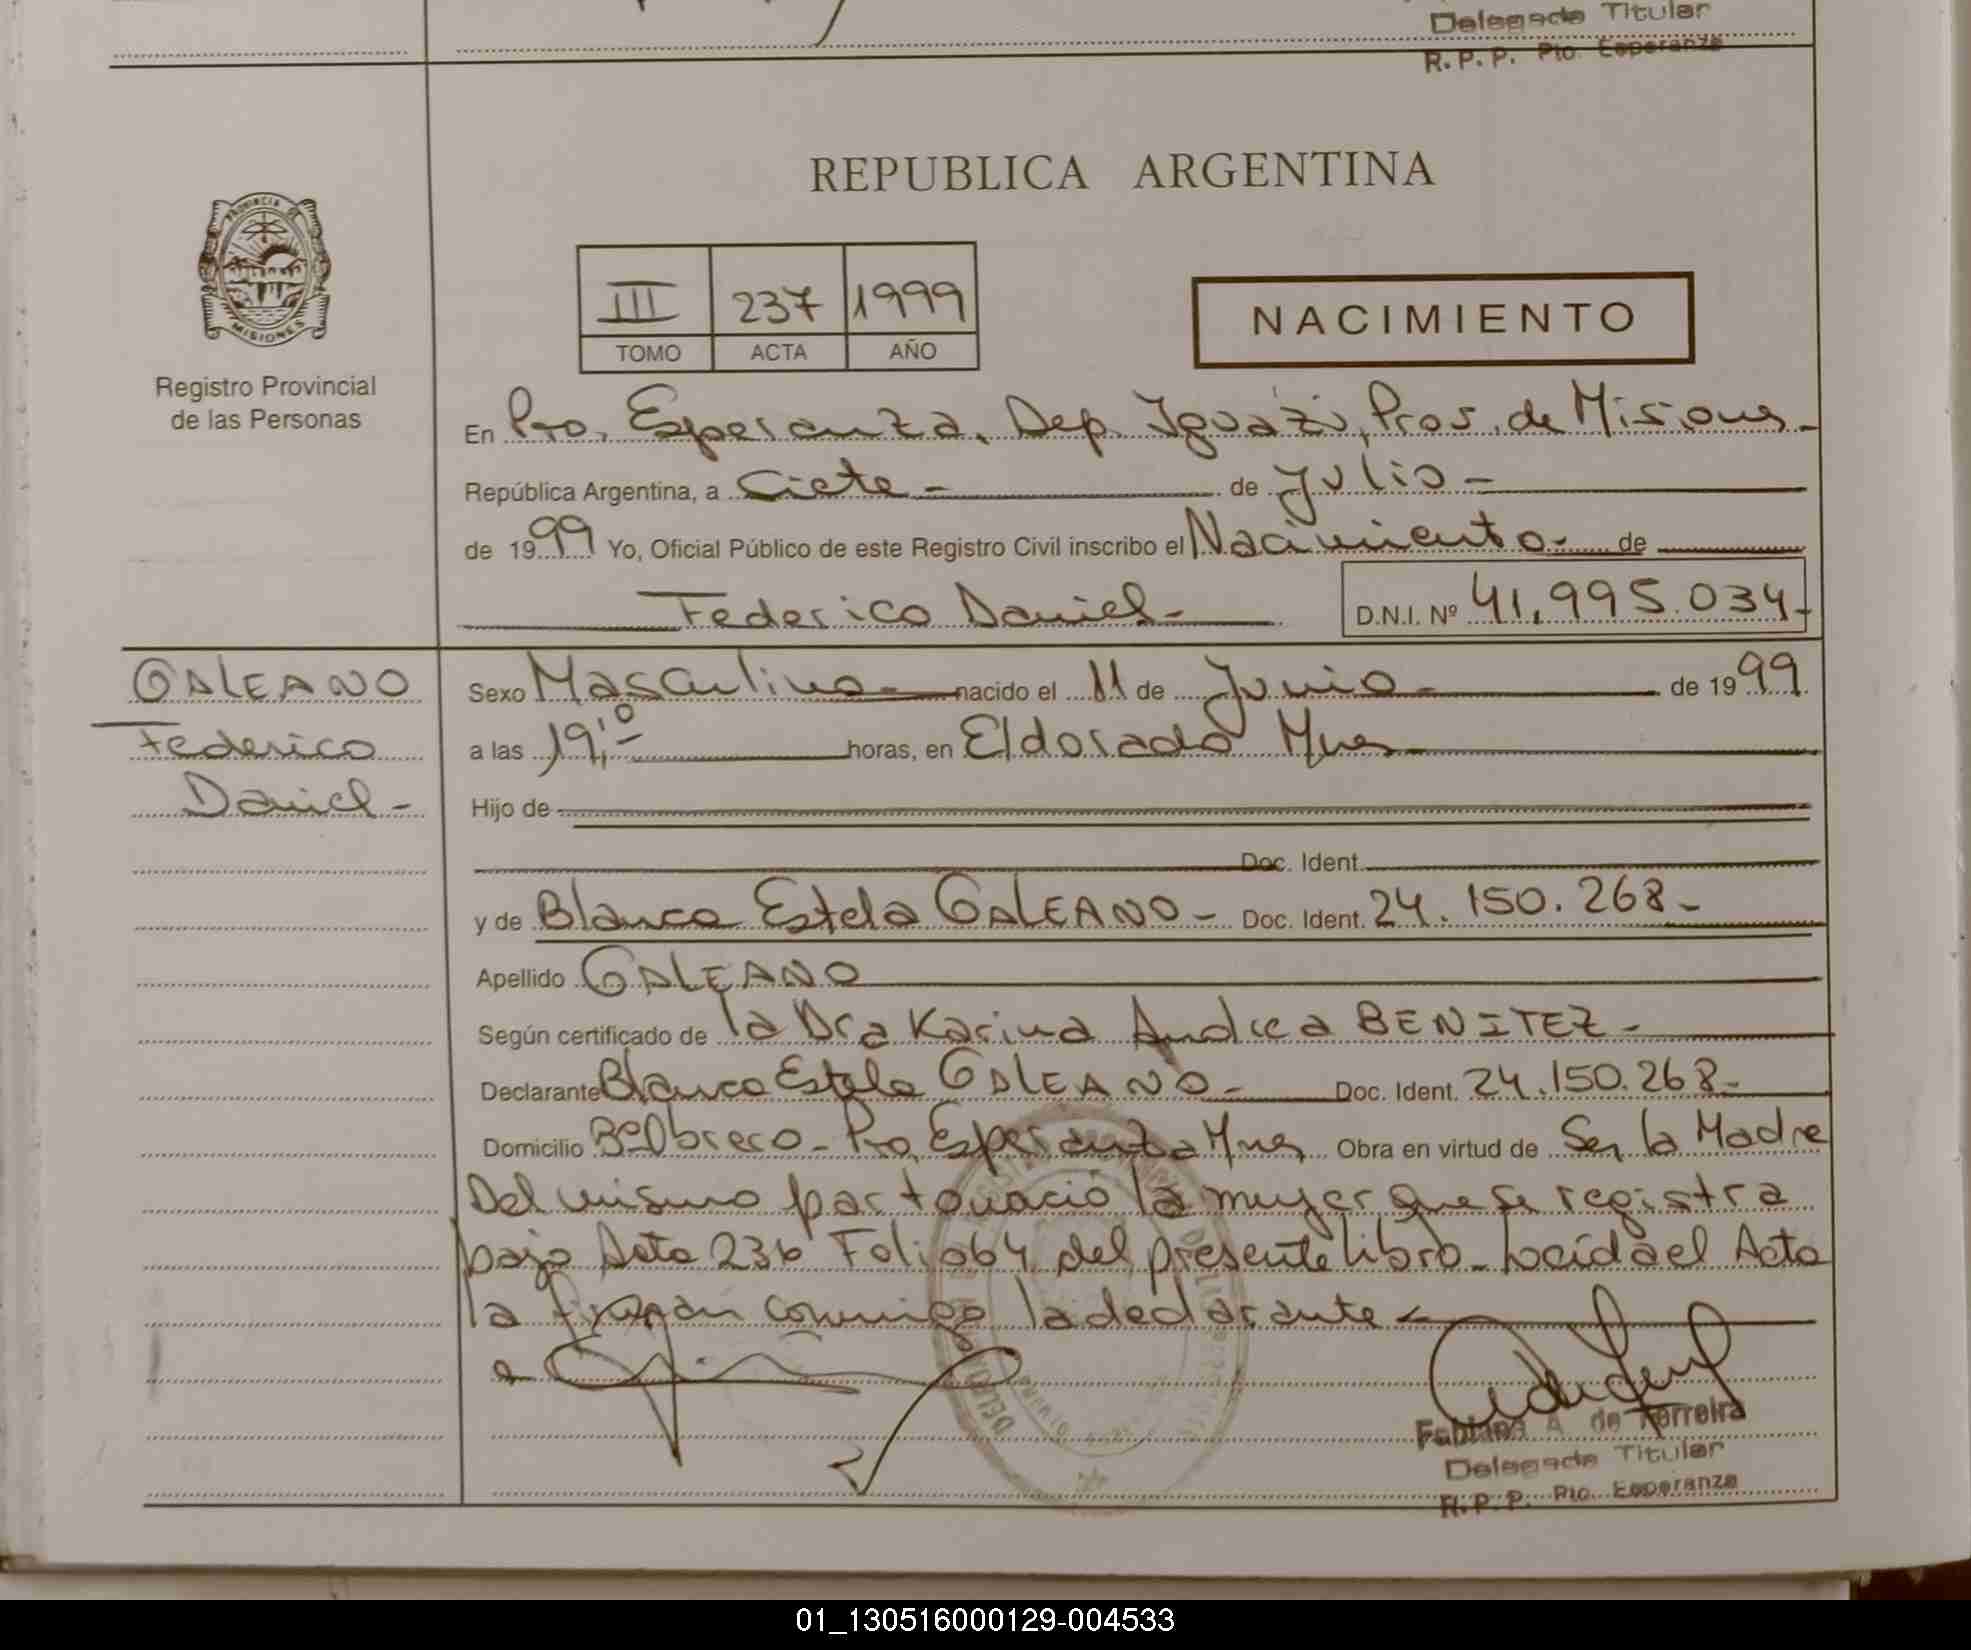 Delegada Titular
R. P. P. Pto. Esperanza
REPUBLICA ARGENTINA
PROVINCIA DE
MISIONES
Registro Provincial
de las Personas
III 237 1999
TOMO ACTA AÑO
NACIMIENTO
En Pto. Esperanza, Dep. Iguazú, Prov. de Misiones
República Argentina, a Ciete - de Julio -
de 1999 Yo, Oficial Público de este Registro Civil inscribo el Nacimiento - de
Federico Daniel -
D.N.I. Nº 41.995.034-
GALEANO
Federico
Daniel -
Sexo Masculino - nacido el 11 de Junio - de 1999
a las 19,10 - horas, en Eldorado Mnes
Hijo de
Doc. Ident.
y de Blanca Estela GALEANO - Doc. Ident. 24.150.268 -
Apellido GALEANO
Según certificado de la Dra Karina Andrea BENITEZ -
Declarante Blanca Estela GALEANO - Doc. Ident. 24.150.268 -
Domicilio Bº Obrero - Pto. Esperanza Mnes Obra en virtud de Ser la Madre
Del mismo parto nació la mujer que se registra
bajo Acta 236 Folio 64 del presente libro - Leída el Acta
la firman conmigo la declarante
Fabiana A. de Ferreira
Delegada Titular
R. P. P. Pto. Esperanza
01_130516000129-004533